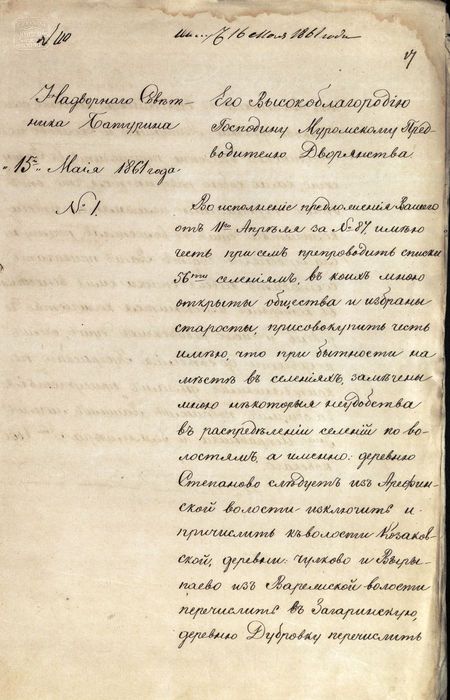 16 Мая 1861 года
Надворнаго Совѣт-
ника Батурина
"15го" Маія 1861 года
№ 1.
Его Высокоблагородію
Господину Муромскому Пред-
водителю Дворянства
Во исполненіе предложенія Вашего
отъ 11го Апрѣля за № 87, имѣю
честь при семъ препроводить списки
56ти селеніямъ, въ коихъ мною
открыты общества и избраны
старосты, присовокупить честь
имѣю, что при бытности на
мѣстѣ въ селеніяхъ, замѣчены
мною нѣкоторыя неудобства
въ распредѣленіи селеній по во-
лостямъ, а именно: деревню
Степаново слѣдуетъ изъ Арефин-
ской волости изключить и
причислить къ волости Козаков-
ской, деревни: Чулково и Выры-
паево изъ Варежской волости
перечислить въ Загаринскую,
деревню Дубровку перечислить